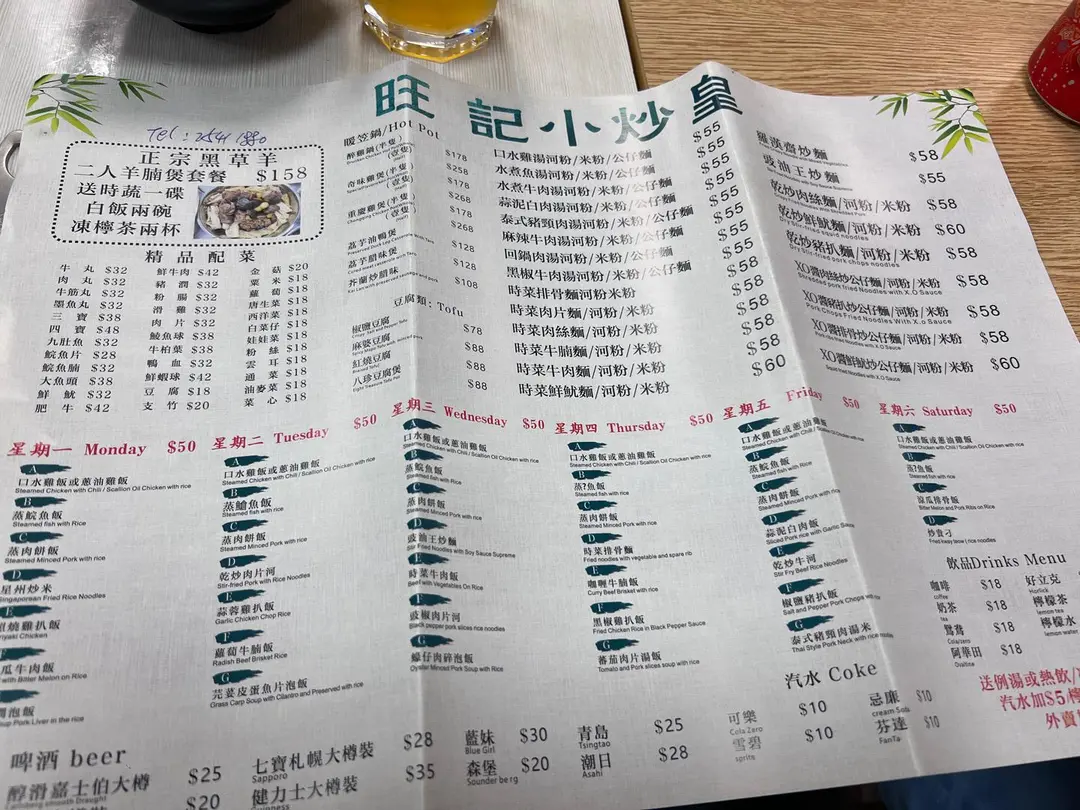 旺記小炒皇
Tel : 2541 1880
正宗黑草羊
二人羊腩煲套餐 $158
送時蔬一碟
白飯兩碗
凍檸茶兩杯
精品配菜
牛丸 $32
肉丸 $32
牛筋丸 $32
墨魚丸 $32
三寶 $38
四寶 $48
九肚魚 $32
鯇魚片 $28
鯇魚腩 $32
大魚頭 $38
鮮魷 $32
肥牛 $42
鮮牛肉 $42
豬潤 $32
粉腸 $32
滑雞 $32
肉片 $32
鯪魚球 $38
牛柏葉 $38
鴨血 $32
鮮蝦球 $42
豆腐 $18
支竹 $20
金菇 $20
粟米 $18
蘿蔔 $18
唐生菜 $18
西洋菜 $18
白菜仔 $18
娃娃菜 $18
粉絲 $18
雲耳 $18
通菜 $18
油麥菜 $18
菜心 $18
暖笠鍋/Hot Pot
醉雞鍋(半隻) $178
(壹隻) $258
奇味雞煲(半隻) $178
(壹隻) $268
重慶雞煲(半隻) $178
(壹隻) $268
荔芋油鴨煲 $128
荔芋腊味煲 $128
芥蘭炒腊味 $108
豆腐類: Tofu
椒鹽豆腐 $78
麻婆豆腐 $88
紅燒豆腐 $88
八珍豆腐煲 $88
口水雞湯河粉/米粉/公仔麵 $55
水煮魚湯河粉/米粉/公仔麵 $55
水煮牛肉湯河粉/米粉/公仔麵 $55
蒜泥白肉湯河粉/米粉/公仔麵 $55
泰式豬頸肉湯河粉/米粉/公仔麵 $55
麻辣牛肉湯河粉/米粉/公仔麵 $55
回鍋肉湯河粉/米粉/公仔麵 $55
黑椒牛肉湯河粉/米粉/公仔麵 $55
時菜排骨麵河粉米粉 $58
時菜肉片麵/河粉/米粉 $58
時菜肉絲麵/河粉/米粉 $58
時菜牛腩麵/河粉/米粉 $58
時菜牛肉麵/河粉/米粉 $58
時菜鮮魷麵/河粉/米粉 $60
羅漢齋炒麵 $58
豉油王炒麵 $55
乾炒肉絲麵/河粉/米粉 $58
乾炒鮮魷麵/河粉/米粉 $60
Dry Stir-fried squid noodles
乾炒豬扒麵/河粉/米粉 $58
Dry Stir-fried pork chops noodles
XO醬肉絲炒公仔麵/河粉/米粉 $58
Shredded pork fried Noodles with X.O Sauce
XO醬豬扒炒公仔麵/河粉/米粉 $58
Pork Chops Fried Noodles With X.O Sauce
XO醬排骨炒公仔麵/河粉/米粉 $58
XO醬鮮魷炒公仔麵/河粉/米粉 $60
Squid fried Noodles with X.O Sauce
星期一 Monday $50
A
口水雞飯或蔥油雞飯
Steamed Chicken with Chili / Scallion Oil Chicken with rice
B
蒸鯇魚飯
Steamed fish with Rice
C
蒸肉餅飯
Steamed Minced Pork with rice
D
星州炒米
Singaporean Fried Rice Noodles
E
燒雞扒飯
Chicken
F
瓜牛肉飯
with Bitter Melon on Rice
潤泡飯
Soup Pork Liver in the rice
星期二 Tuesday $50
A
口水雞飯或蔥油雞飯
Steamed Chicken with Chili / Scallion Oil Chicken with rice
B
蒸鱠魚飯
Steamed fish with Rice
C
蒸肉餅飯
Steamed Minced Pork with rice
D
乾炒肉片河
Stir-fried Pork with Rice Noodles
E
蒜蓉雞扒飯
Garlic Chicken Chop Rice
F
蘿蔔牛腩飯
Radish Beef Brisket Rice
G
芫荽皮蛋魚片泡飯
Grass Carp Soup with Cilantro and Preserved with rice
星期三 Wednesday $50
A
口水雞飯或蔥油雞飯
Steamed Chicken with Chili / Scallion Oil Chicken with rice
B
蒸鯇魚飯
Steamed fish with Rice
C
蒸肉餅飯
Steamed Minced Pork with rice
D
豉油王炒麵
Stir Fried Noodles with Soy Sauce Supreme
E
時菜牛肉飯
Beef with Vegetables On Rice
F
豉椒肉片河
Black pepper pork slices rice noodles
G
蠔仔肉碎泡飯
Oyster Minced Pork Soup with Rice
星期四 Thursday $50
A
口水雞飯或蔥油雞飯
Steamed Chicken with Chili / Scallion Oil Chicken with rice
B
蒸?魚飯
Steamed fish with rice
C
蒸肉餅飯
Steamed Minced Pork with rice
D
時菜排骨麵
Fried noodles with vegetables and spare rib
E
咖喱牛腩飯
Curry Beef Brisket with rice
F
黑椒雞扒飯
Fried Chicken Rice in Black Pepper Sauce
G
蕃茄肉片湯飯
Tomato and Pork slices soup with rice
星期五 Friday $50
A
口水雞飯或蔥油雞飯
Steamed Chicken with Chili / Scallion Oil Chicken with rice
B
蒸鯇魚飯
Steamed fish with Rice
C
蒸肉餅飯
Steamed Minced Pork with rice
D
蒜泥白肉飯
Sliced Pork rice with Garlic Sauce
E
乾炒牛河
Stir Fry Beef Rice Noodles
F
椒鹽豬扒飯
Salt and Pepper Pork Chops with rice
G
泰式豬頸肉湯米
Thai Style Pork Neck with rice noodle
星期六 Saturday $50
A
口水雞飯或蔥油雞飯
Steamed Chicken with Chili / Scallion Oil Chicken with rice
B
蒸?魚飯
Steamed fish with Rice
C
涼瓜排骨飯
Bitter Melon and Pork Ribs on Rice
D
炒貪刁
飲品Drinks Menu
咖啡 $18
coffee
奶茶 $18
tea
鴛鴦 $18
阿華田 $18
Ovaltine
好立克
Horlick
檸檬茶
lemon tea
檸檬水
lemon water
送例湯或熱飲/
汽水加$5/檸
外賣
啤酒 beer
醇滑嘉士伯大樽 $25
Carlsberg smooth Draught
$20
七寶札幌大樽裝 $28
Sapporo
健力士大樽裝 $35
Guinness
藍妹 $30
Blue Girl
森堡 $20
Sounderberg
青島 $25
Tsingtao
潮日 $28
Asahi
汽水 Coke
可樂 $10
Cola Zero
雪碧 $10
sprite
忌廉 $10
cream Soda
芬達 $10
FanTa